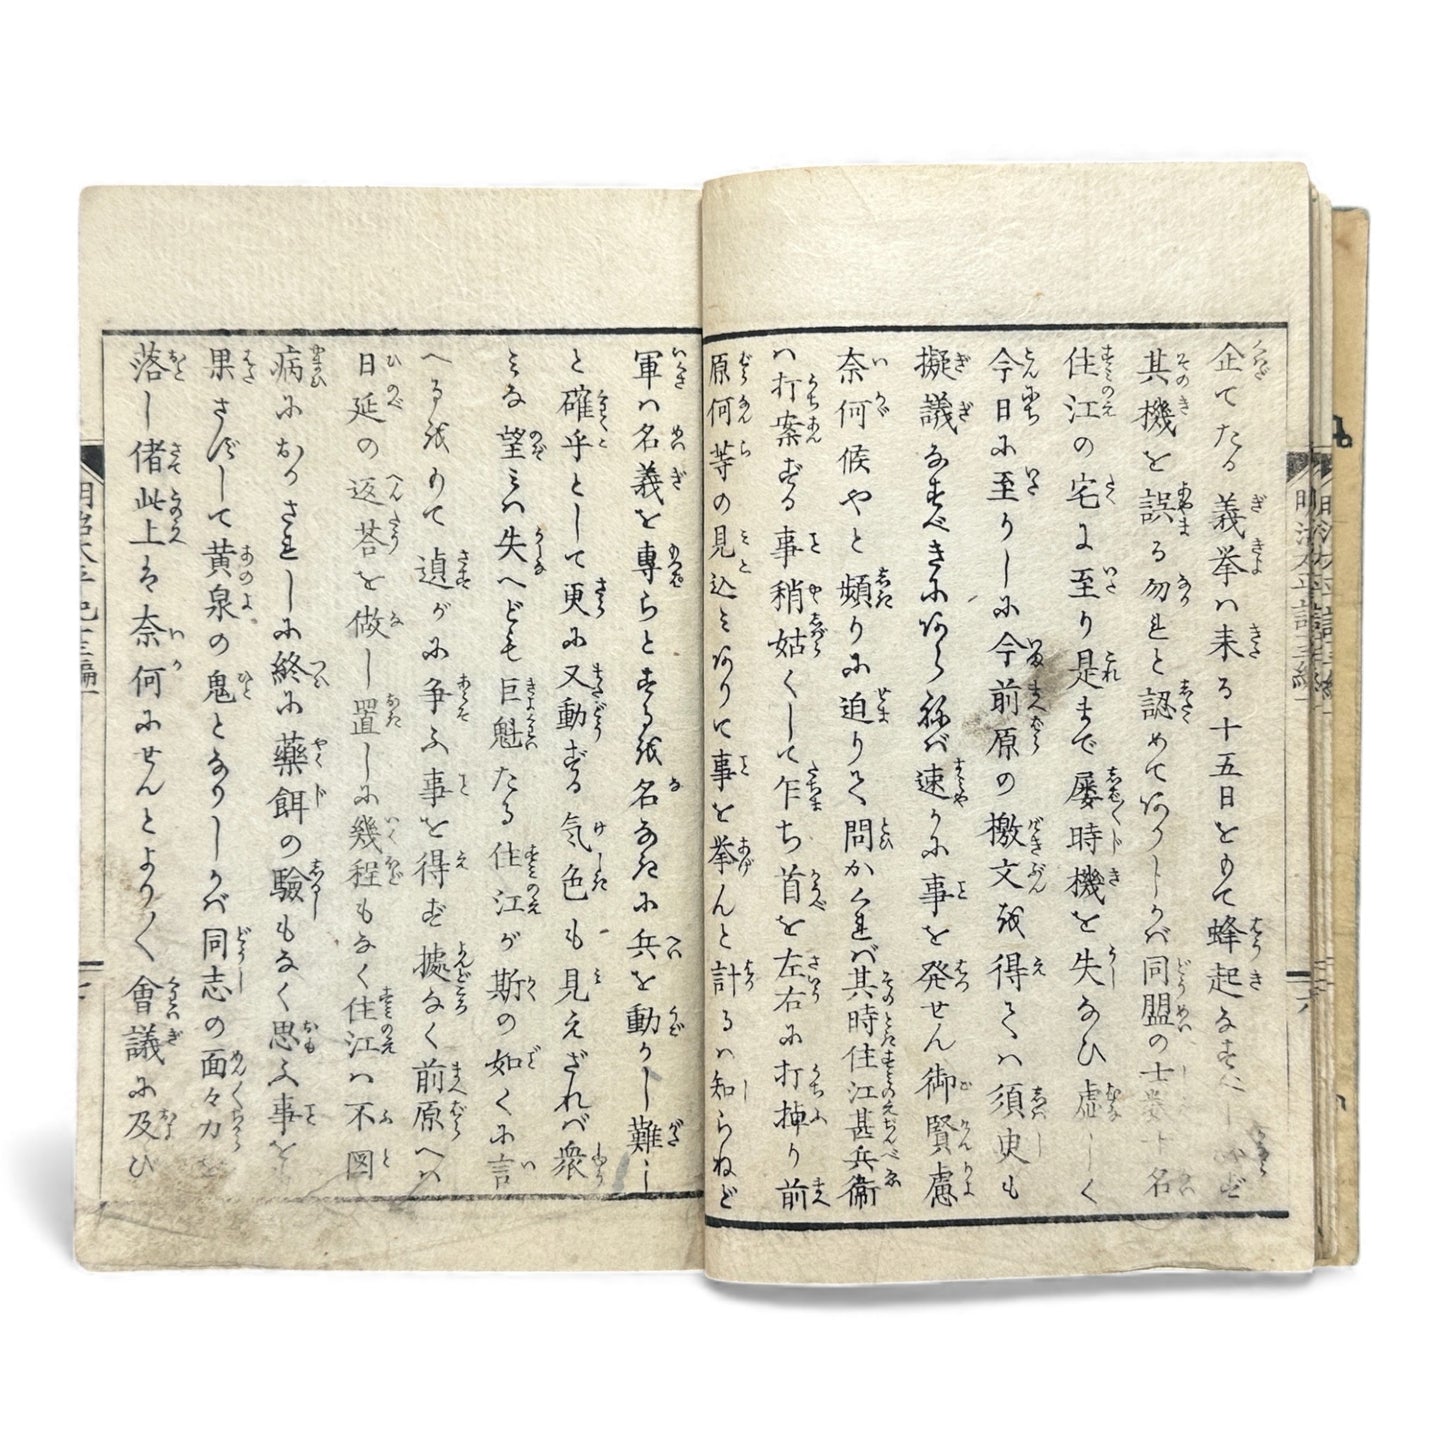 企てたる義挙ハ来る十五日をもて蜂起なすべ
其機を誤る勿れと認めてありしかバ同盟の士
住江の宅に至り是まで屡時機を失なひ虚しく
今日に至りしに今前原の檄文を得てハ須臾も
擬議なすべきにあらねバ速かに事を発せん御賢慮
奈何候やと頻りに迫りて問かくれバ其時住江甚兵衞
ハ打案ずる事稍姑くして乍ち首を左右に打掉り前
原何等の見込ミありて事を挙んと計るハ知らねど
軍ハ名義を専らとするを名なきに兵を動かし難し
と確乎として更に又動ずる気色も見えざれバ衆
ミな望ミハ失へども巨魁たる住江が斯の如くに言
へるをもて遉がに争ふ事を得ず據なく前原へハ
日延の返荅を做し置しに幾程もなく住江ハ不図
病におかされしに終に藥餌の驗もなく思ふ事を
果さずして黄泉の鬼となりしかバ同志の面々力を
落し偖此上は奈何にせんとより〳〵會議に及ひ
明治太平記十三編